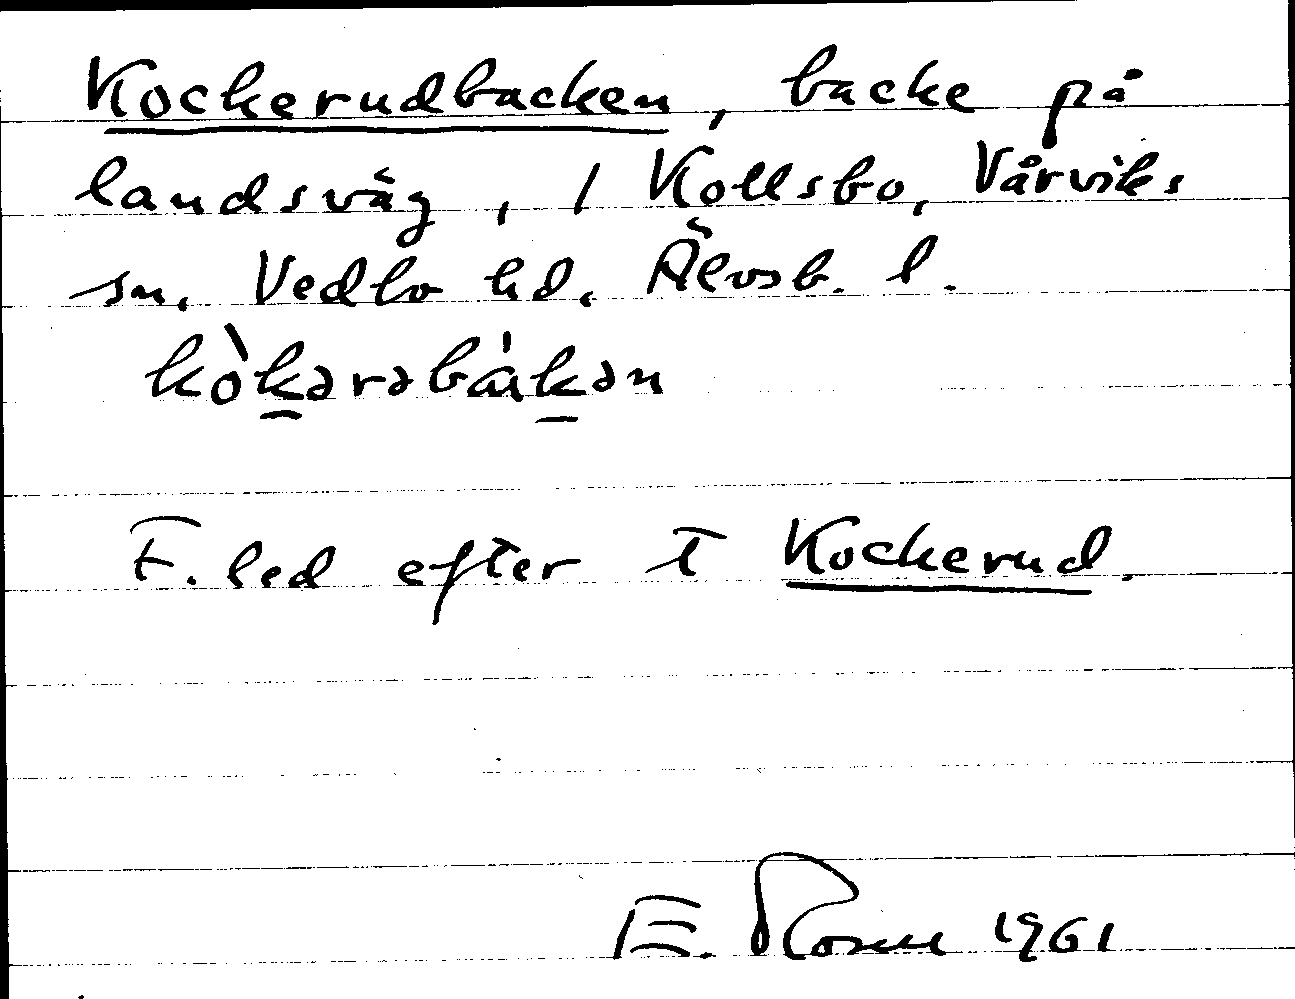 Kockerudbacken, backe på
landsväg, / Kollsbo, Vårviks
sn. Vedbo hd. Älvsb. l.
kòkərəbàkən
F. led efter T Kockerud.
E. Rosen 1961